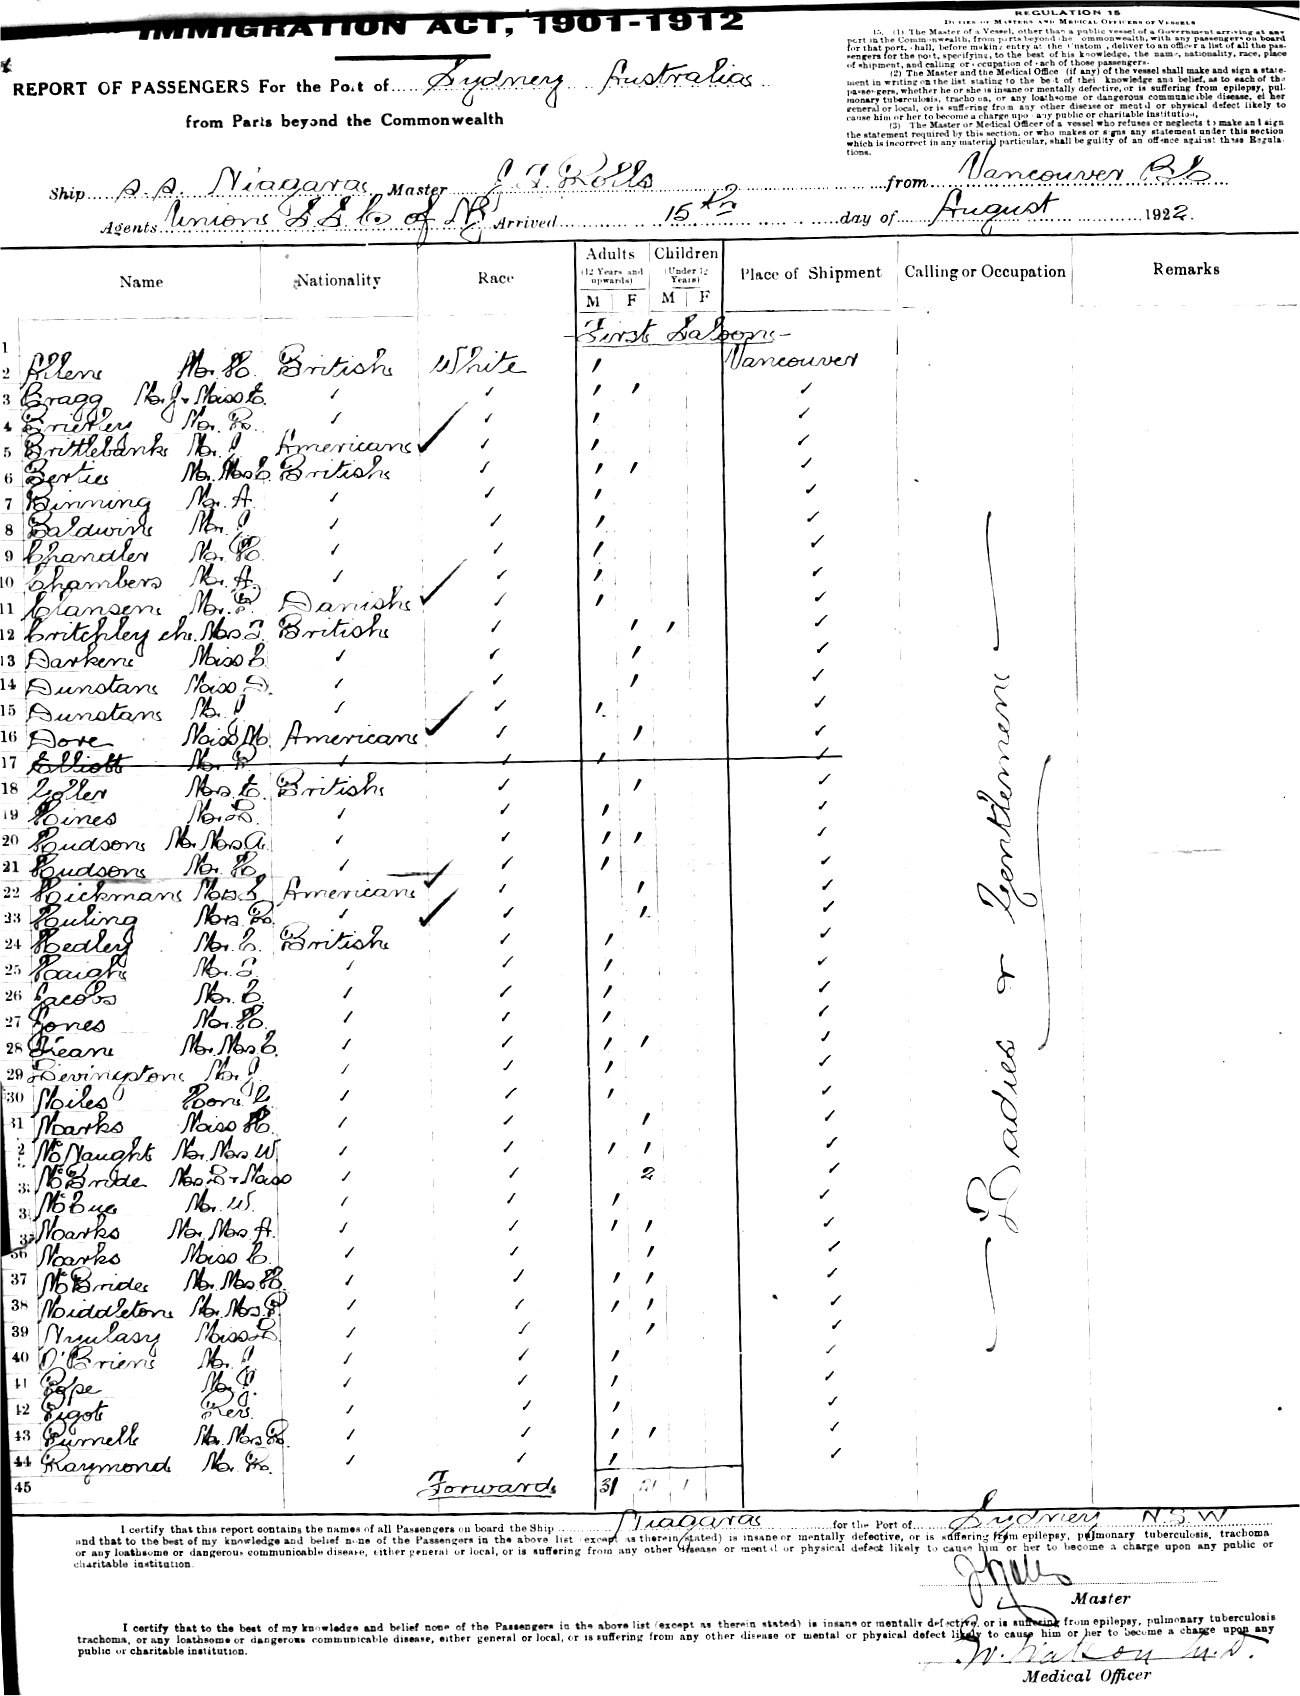 IMMIGRATION ACT, 1901-1912
REGULATION 15
DUTIES OF MASTERS AND MEDICAL OFFICERS OF VESSELS
15. (1) The Master of a Vessel, other than a public vessel of a Government arriving at any
port in the Commonwealth, from parts beyond the Commonwealth, with any passengers on board
for that port, shall, before making entry at the Customs, deliver to an officer a list of all the pas-
sengers for the port, specifying, to the best of his knowledge, the name, nationality, race, place
of shipment, and calling or occupation of each of those passengers.
(2) The Master and the Medical Office (if any) of the vessel shall make and sign a state-
ment in writing on the list stating to the best of their knowledge and belief, as to each of the
passengers, whether he or she is insane or mentally defective, or is suffering from epilepsy, pul-
monary tuberculosis, trachoma, or any loathsome or dangerous communicable disease, either
general or local, or is suffering from any other disease or mental or physical defect likely to
cause him or her to become a charge upon any public or charitable institution,
(3) The Master or Medical Officer of a vessel who refuses or neglects to make and sign
the statement required by this section, or who makes or signs any statement under this section
which is incorrect in any material particular, shall be guilty of an offence against these Regula-
tions.
REPORT OF PASSENGERS For the Port of Sydney Australia
from Parts beyond the Commonwealth
Ship s.s. Niagara Master J.T. Rolls from Vancouver B.C.
Agents Union S.S. Co of NZ Arrived 15th day of August 1922.
Name Nationality Race Adults (12 Years and upwards) M F Children (Under 12 Years) M F Place of Shipment Calling or Occupation Remarks
1 First Saloon
2 Allen Mr. H. British White ' Vancouver
3 Bragg Mr. J. & Miss E. ✓ ✓ ' ' ✓
4 Brierley Mr. ✓ ✓ ' ✓
5 Brittlebank Mr. J. American ✓ ✓ ' ✓
6 Bertie Mr. Mrs C. British ✓ ' ' ✓
7 Binning Mr. A. ✓ ✓ ' ✓
8 Baldwin Mr. J. ✓ ✓ ' ✓
9 Chandler Mr. H. ✓ ✓ ' ✓
10 Chambers Mr. A. ✓ ✓ ' ✓
11 Clansen Mr. P. Danish ✓ ✓ ' ✓
12 Critchley ch. Mrs T. British ✓ ' ' ✓
13 Darken Miss E. ✓ ✓ ' ✓
14 Dunstan Miss D. ✓ ✓ ' ✓
15 Dunstan Mr. J. ✓ ✓ ' ✓
16 Dove Miss M. American ✓ ✓ ' ✓
17 Elliott Mr. ✓ ✓ ' ✓
18 Mrs. E. British ✓ ' ✓
19 Hines Mr. ✓ ✓ ' ✓
20 Hudson Mr. Mrs A. ✓ ✓ ' ' ✓
21 Hudson Mr. H. ✓ ✓ ' ✓
22 Hickman Mrs. American ✓ ✓ ' ✓
23 Huling Mrs. ✓ ✓ ✓ ' ✓
24 Hedley Mr. C. British ✓ ' ✓
25 Haigh Mr. T. ✓ ✓ ' ✓
26 Jacobs Mr. C. ✓ ✓ ' ✓
27 Jones Mr. H. ✓ ✓ ' ✓
28 Kean Mr. Mrs C. ✓ ✓ ' ' ✓
29 Levingston Mr. J. ✓ ✓ ' ✓
30 Miles Hon. E. ✓ ✓ ' ✓
31 Marks Miss H. ✓ ✓ ' ✓
2 McNaught Mr. Mrs. W. ✓ ✓ ' ' ✓
3 McBride Mrs & Miss ✓ ✓ 2 ✓
3 McCue Mr. W. ✓ ✓ ' ✓
35 Marks Mr. Mrs A. ✓ ✓ ' ' ✓
36 Marks Miss C. ✓ ✓ ' ✓
37 McBride Mr. Mrs H. ✓ ✓ ' ' ✓
38 Middleton Mr. Mrs. P. ✓ ✓ ' ' ✓
39 Nyulasy Miss ✓ ✓ ' ✓
40 O'Brien Mr. J. ✓ ✓ ' ✓
41 Pope Mr. ✓ ✓ ' ✓
42 Pigot Rev. ✓ ✓ ' ✓
43 Purnell Mr. Mrs R. ✓ ✓ ' ' ✓
44 Raymond Mr. R. ✓ ✓ ' ✓
45 Forward 31 21 1
Ladies & Gentlemen
I certify that this report contains the names of all Passengers on board the Ship Niagara for the Port of Sydney N.S.W
and that to the best of my knowledge and belief none of the Passengers in the above list (except as therein stated) is insane or mentally defective, or is suffering from epilepsy, pulmonary tuberculosis, trachoma
or any loathsome or dangerous communicable disease, either general or local, or is suffering from any other disease or mental or physical defect likely to cause him or her to become a charge upon any public or
charitable institution.
J Rolls
Master
I certify that to the best of my knowledge and belief none of the Passengers in the above list (except as therein stated) is insane or mentally defective, or is suffering from epilepsy, pulmonary tuberculosis
trachoma, or any loathsome or dangerous communicable disease, either general or local, or is suffering from any other disease or mental or physical defect likely to cause him or her to become a charge upon any
public or charitable institution.
W. Watson M.D.
Medical Officer